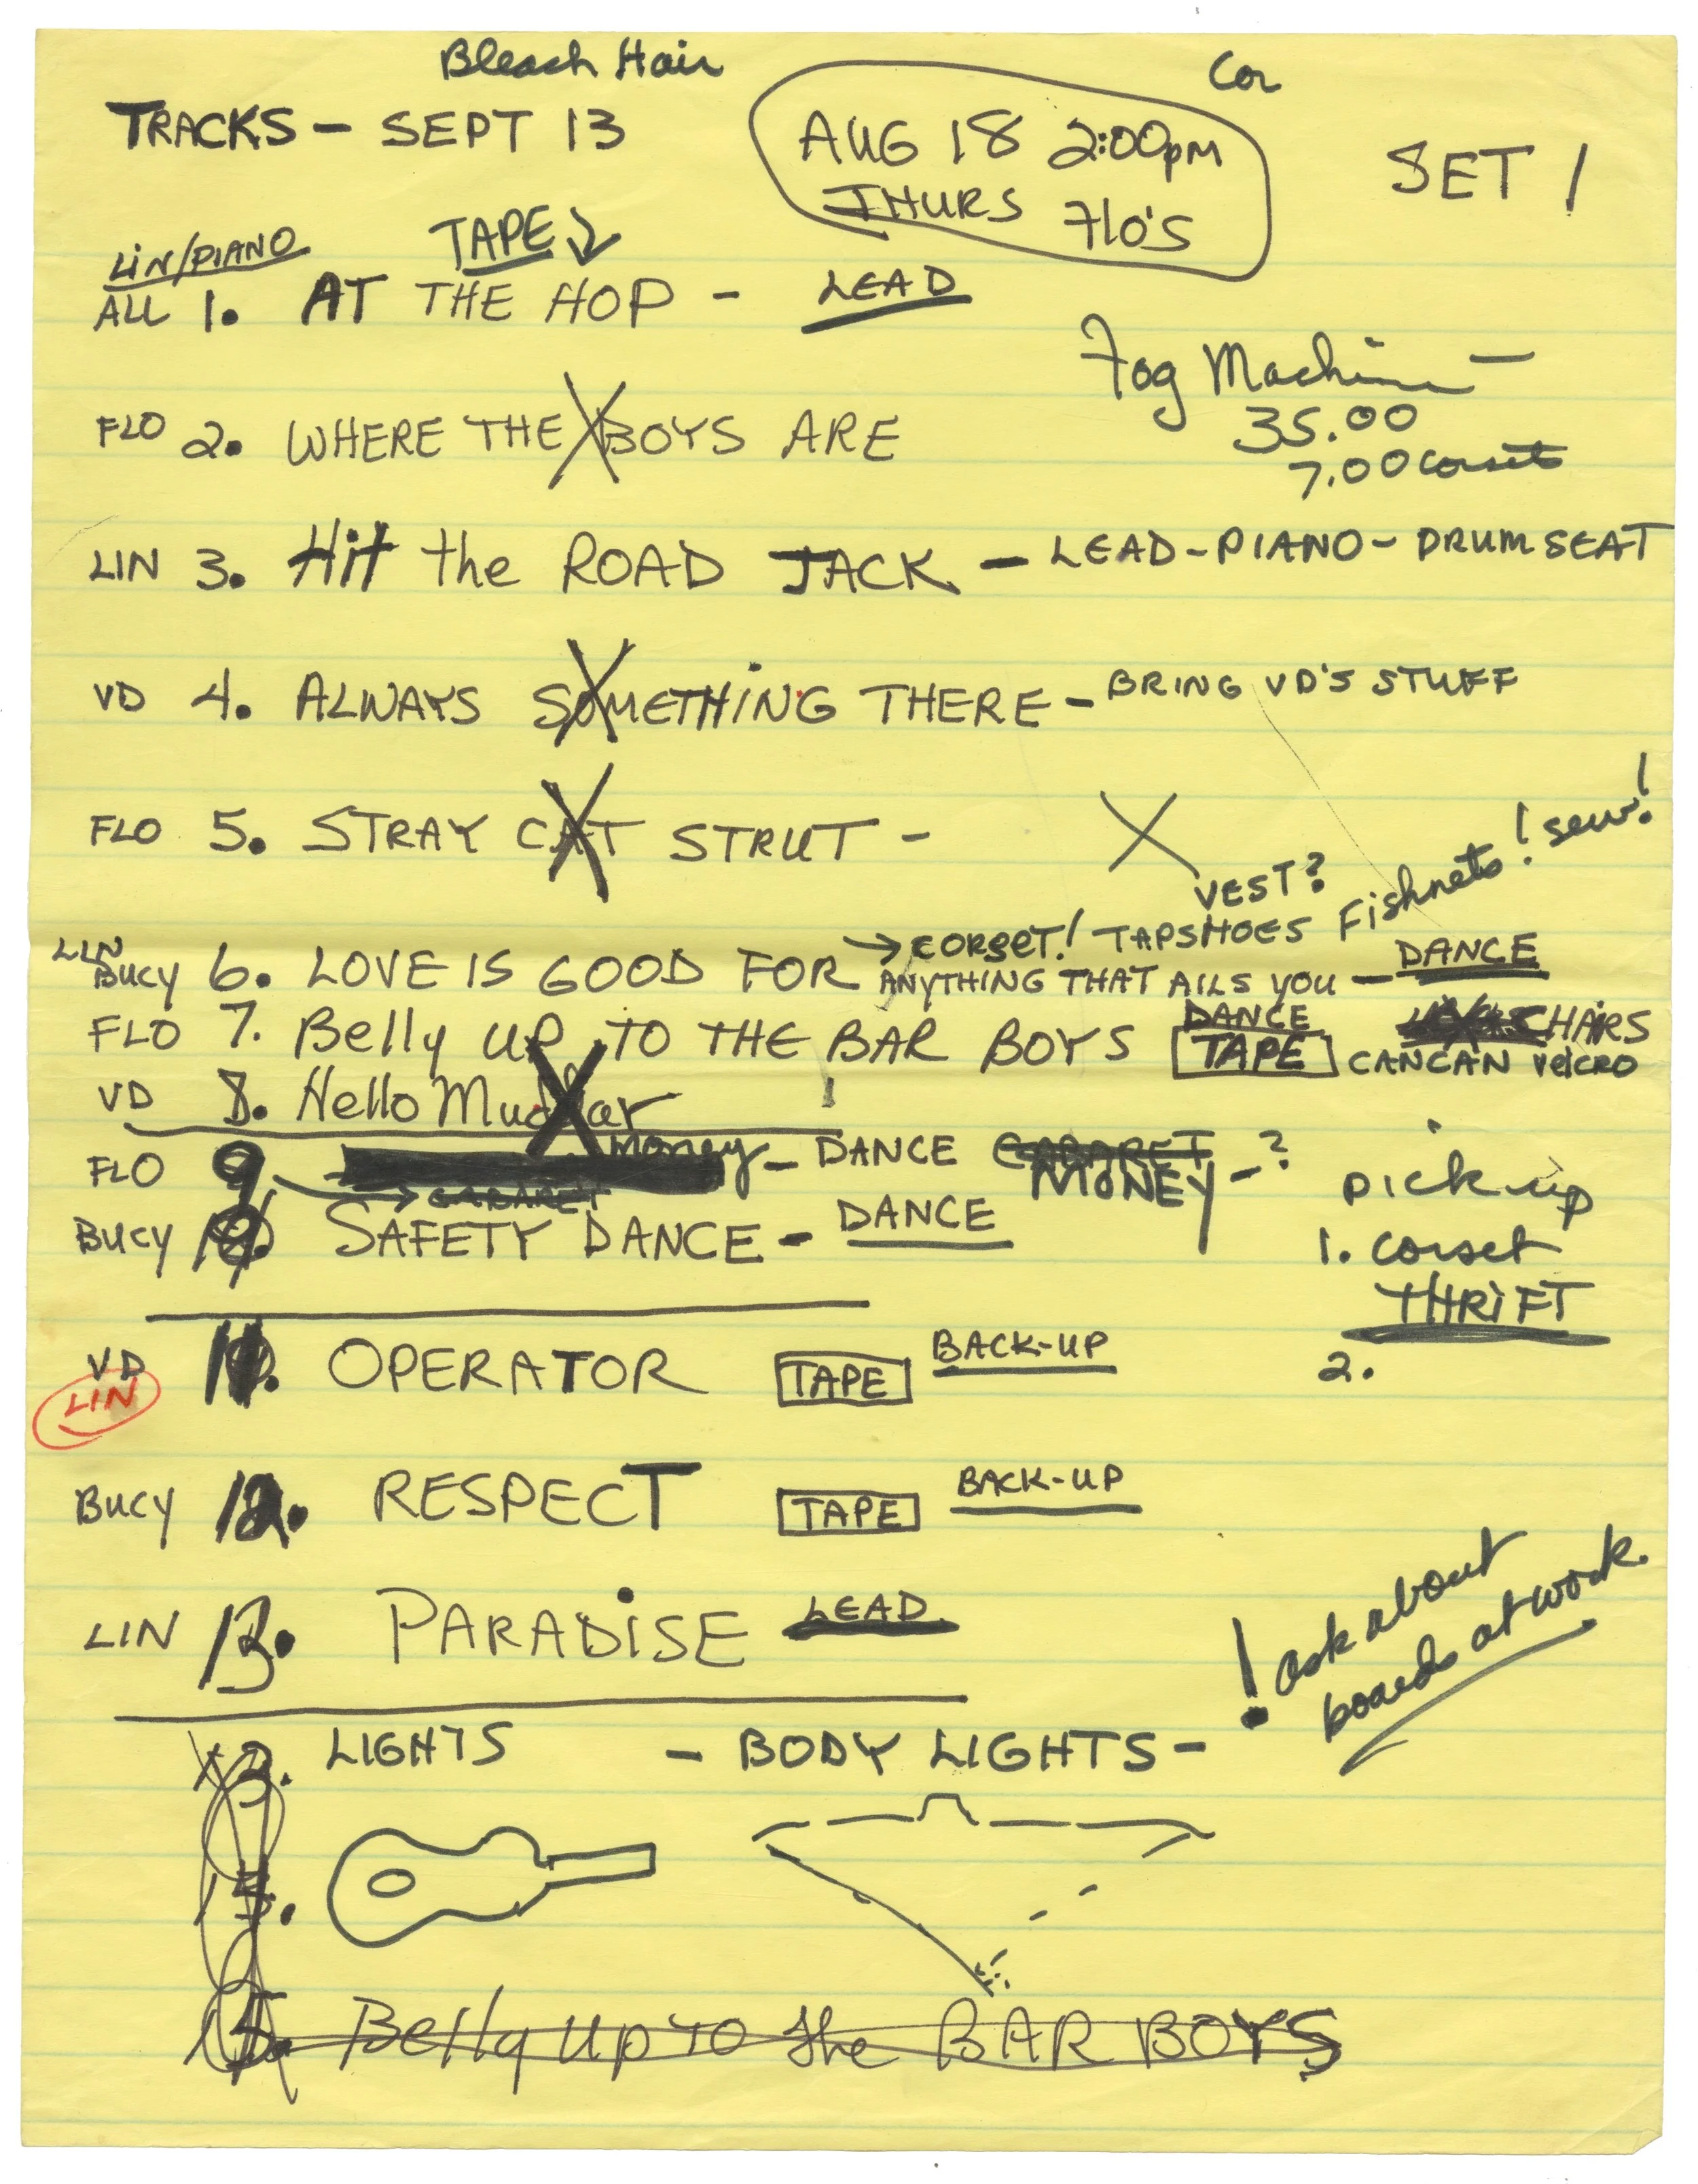 Bleach Hair
Cor
TRACKS - SEPT 13
AUG 18 2:00pm
THURS FLO'S
SET 1
LIN/PIANO
TAPE
ALL 1. AT THE HOP - LEAD
Fog Machine -
35.00
7.00 corsets
FLO 2. WHERE THE BOYS ARE
LIN 3. Hit the ROAD JACK - LEAD-PIANO-DRUM SEAT
VD 4. ALWAYS SOMETHING THERE - BRING VD'S STUFF
FLO 5. STRAY CAT STRUT -
VEST?
→ CORSET! TAPSHOES Fishnets! sew!
LIN
BUCY 6. LOVE IS GOOD FOR ANYTHING THAT AILS YOU - DANCE
FLO 7. Belly UP TO THE BAR BOYS DANCE TAPE CHAIRS
CANCAN VELCRO
VD 8. Hello Muddar
FLO 9 Money - DANCE CABARET MONEY - ?
→ CABARET
BUCY 10. SAFETY DANCE - DANCE
pick up
1. corset
THRIFT
2.
VD
LIN
11. OPERATOR TAPE BACK-UP
BUCY 12. RESPECT TAPE BACK-UP
LIN 13. PARADISE LEAD
! ask about
boards at work.
LIGHTS - BODY LIGHTS -
15.
Belly up TO the BAR BOYS